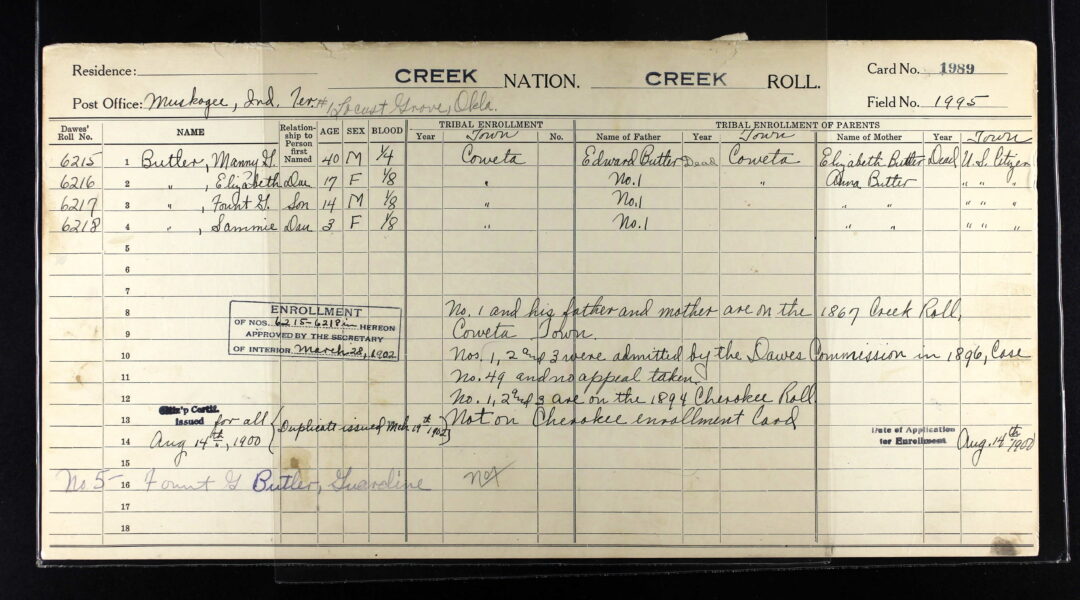 Residence: CREEK NATION. CREEK ROLL. Card No. 1989
Post Office: Muskogee, Ind. Ter. Locust Grove, Okla. Field No. 1995
Dawes' Roll No. NAME Relationship to Person first Named AGE SEX BLOOD TRIBAL ENROLLMENT TRIBAL ENROLLMENT OF PARENTS
Year Town No. Name of Father Year Town Name of Mother Year Town
6215 1 Butler, Manny G. 40 M 1/4 Coweta Edward Butler Dead Coweta Elizabeth Butler Dead U.S. Citizen
6216 2 " , Elizabeth Dau 17 F 1/8 " No.1 " Anna Butler " " "
6217 3 " , Fount G. Son 14 M 1/8 " No.1 " " " " "
6218 4 " , Sammie Dau 3 F 1/8 " No.1 " " " " "
5
6
7
8 No. 1 and his father and mother are on the 1867 Creek Roll,
9 Coweta Town.
10 Nos. 1, 2 and 3 were admitted by the Dawes Commission in 1896, Case
11 No. 49 and no appeal taken.
12 No. 1, 2 and 3 are on the 1894 Cherokee Roll.
13 Not on Cherokee enrollment Card
ENROLLMENT
OF NOS. 6215-6218 in HEREON
APPROVED BY THE SECRETARY
OF INTERIOR. March 28, 1902
Citiz'p Certif.
Issued for all
14 Aug 14th, 1900
Duplicate issued Mch 19th 1902
Date of Application
for Enrollment. Aug. 14th 1900
15
No 5- 16 Fount G Butler, Guardine not
17
18